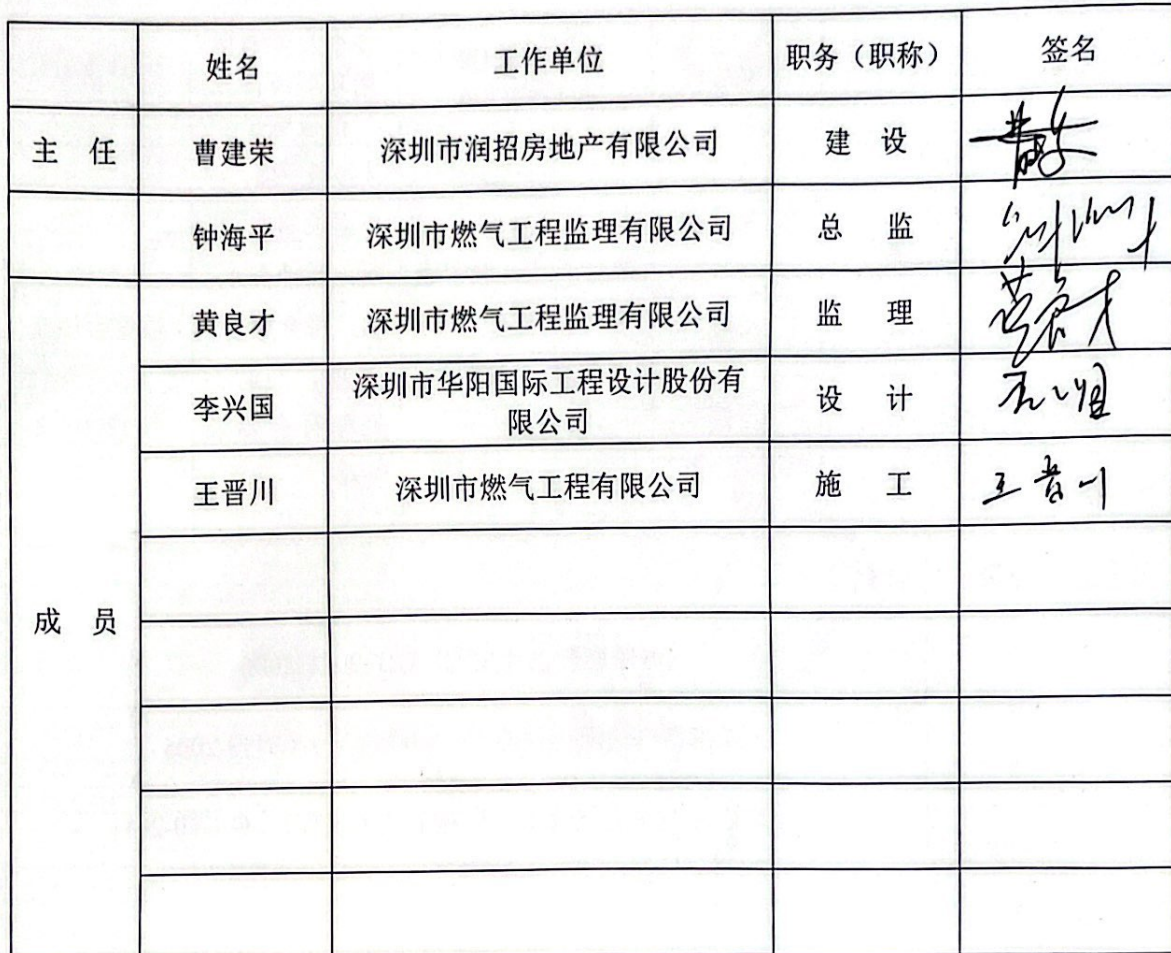 姓名 工作单位 职务（职称） 签名
主 任 曹建荣 深圳市润招房地产有限公司 建 设
钟海平 深圳市燃气工程监理有限公司 总 监
黄良才 深圳市燃气工程监理有限公司 监 理 黄良才
李兴国 深圳市华阳国际工程设计股份有
限公司 设 计
王晋川 深圳市燃气工程有限公司 施 工 王晋川
成 员